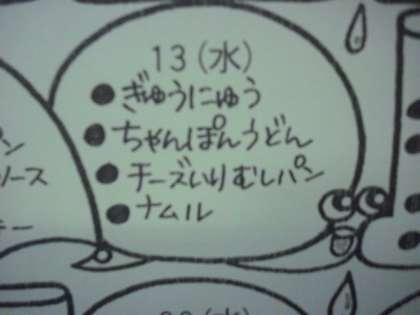 13(水)
●ぎゅうにゅう
●ちゃんぽんうどん
●チーズいりむしパン
●ナムル
ン
ソース
ー